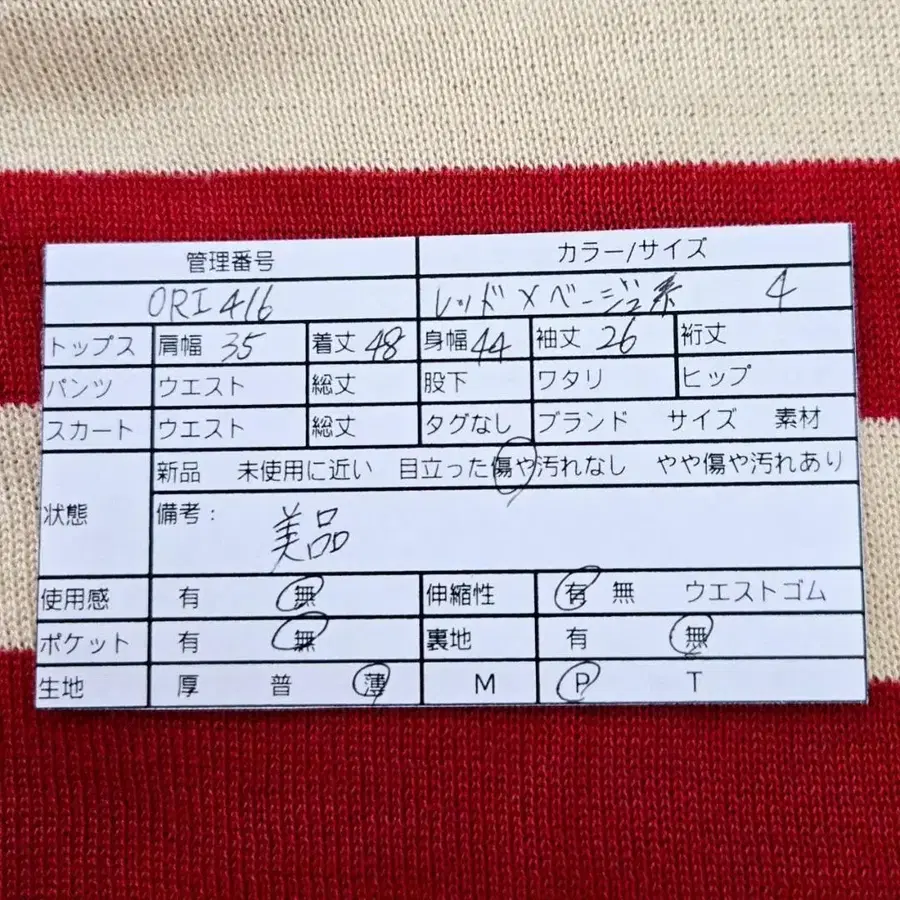 管理番号 カラー/サイズ
ORI416 レッド×ベージュ系 4
トップス 肩幅 35 着丈 48 身幅 44 袖丈 26 裄丈
パンツ ウエスト 総丈 股下 ワタリ ヒップ
スカート ウエスト 総丈 タグなし ブランド サイズ 素材
状態 新品 未使用に近い 目立った傷や汚れなし やや傷や汚れあり
備考: 美品
使用感 有 無 伸縮性 有 無 ウエストゴム
ポケット 有 無 裏地 有 無
生地 厚 普 薄 M P T